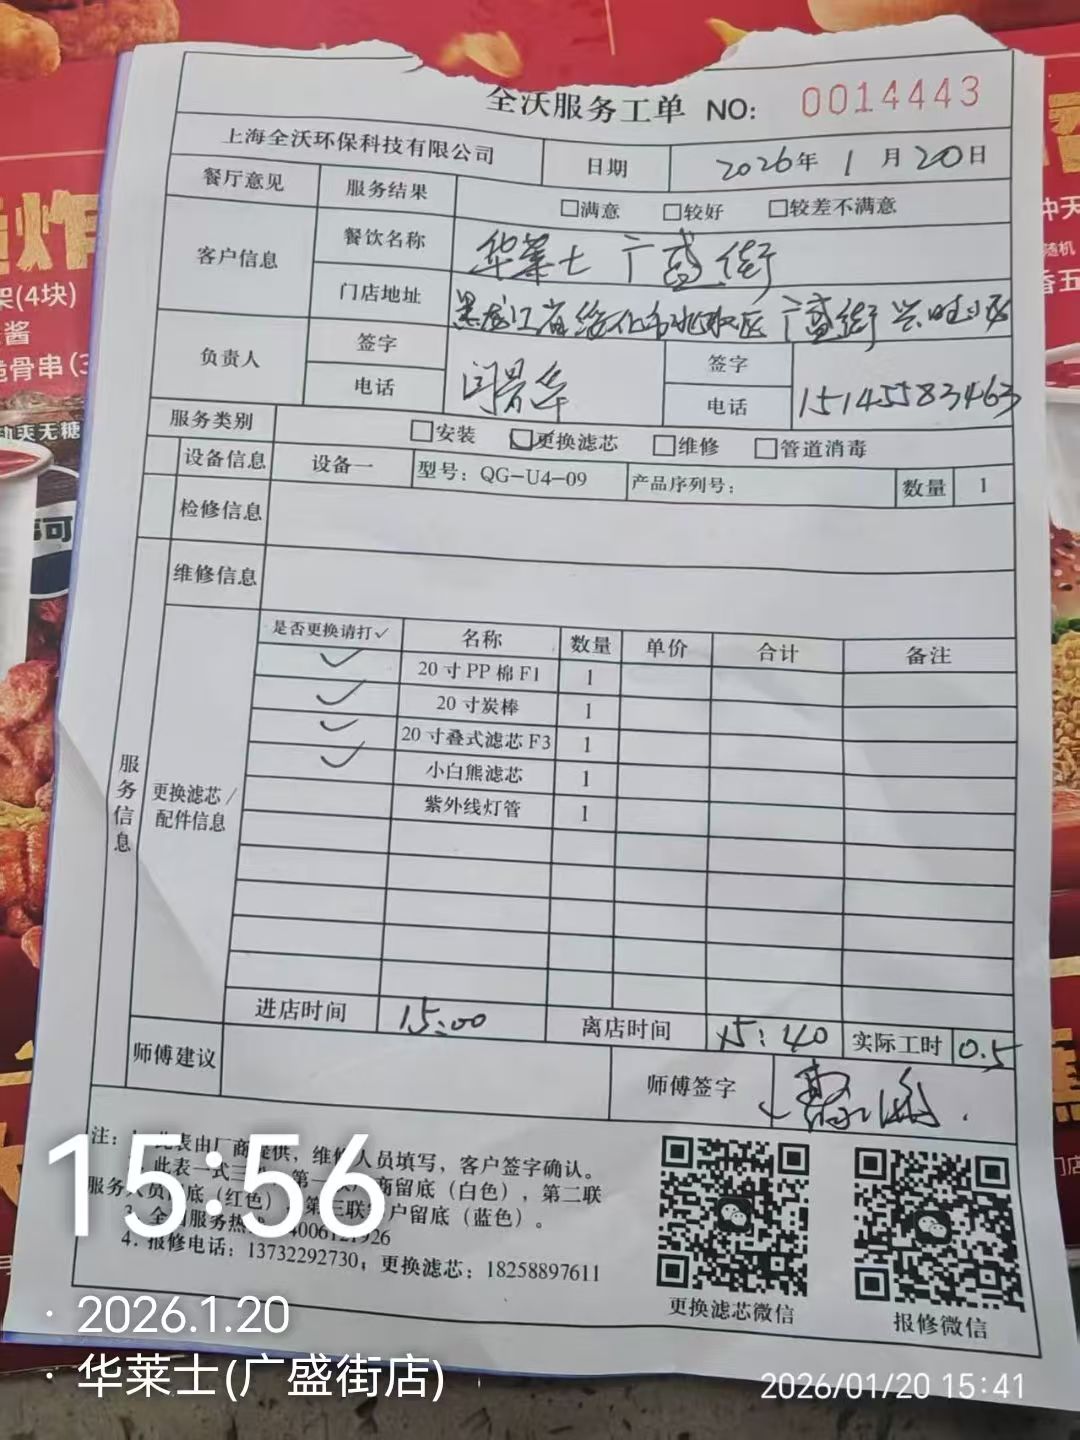 全沃服务工单 NO: 0014443
上海全沃环保科技有限公司 日期 2026年 1 月 20日
餐厅意见 服务结果 □满意 □较好 □较差不满意
客户信息 餐饮名称 华莱士 广盛街
门店地址 黑龙江省绥化市北林区广盛街
负责人 签字 签字
电话 电话 15145583463
服务类别 □安装 □更换滤芯 □维修 □管道消毒
设备信息 设备一 型号：QG-U4-09 产品序列号： 数量 1
检修信息
维修信息
服务信息
更换滤芯/配件信息
是否更换请打✓ 名称 数量 单价 合计 备注
✓ 20寸PP棉F1 1
✓ 20寸炭棒 1
✓ 20寸叠式滤芯F3 1
✓ 小白熊滤芯 1
紫外线灯管 1
进店时间 15:00 离店时间 15:40 实际工时 0.5
师傅建议 师傅签字
注：1. 此表由厂商提供，维修人员填写，客户签字确认。
此表一式三 第一 商留底（白色），第二联
服务人员 底（红色） 第三联客户留底（蓝色）。
3. 全国服务热
4. 报修电话：13732292730；更换滤芯：18258897611
更换滤芯微信
报修微信
15:56
· 2026.1.20
· 华莱士(广盛街店)
2026/01/20 15:41